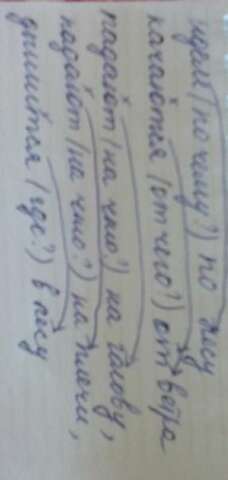 идём (по чему?) по лесу
качаются (от чего?) от ветра
падают (на что?) на голову,
падают (на что?) на плечи,
дышится (где?) в лесу